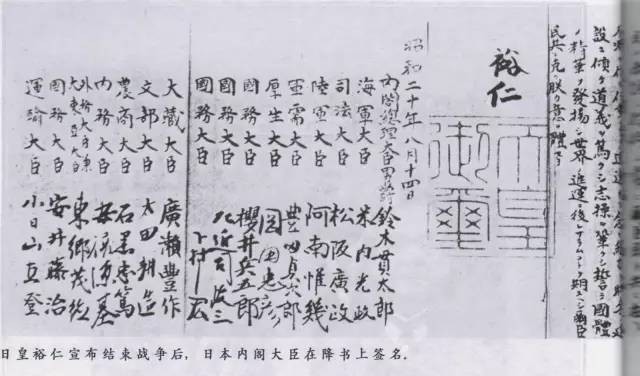 設ニ傾ケ道義ヲ篤クシ志操ヲ鞏クシ誓テ國體
ノ精華ヲ發揚シ世界ノ進運ニ後レサラムコトヲ期スヘシ爾臣
民其レ克ク朕カ意ヲ體セヨ
裕仁
天皇
御璽
昭和二十年八月十四日
內閣總理大臣男爵 鈴木貫太郎
海軍大臣 米內光政
司法大臣 松阪廣政
陸軍大臣 阿南惟幾
軍需大臣 豊田貞次郎
厚生大臣 岡田忠彥
國務大臣 櫻井兵五郎
國務大臣 左近司政三
國務大臣 下村宏
大藏大臣 廣瀨豊作
文部大臣 太田耕造
農商大臣 石黑忠篤
內務大臣 安倍源基
外務大臣兼
大東亞大臣 東鄉茂德
國務大臣 安井藤治
運輸大臣 小日山直登
日皇裕仁宣布结束战争后，日本内阁大臣在降书上签名。